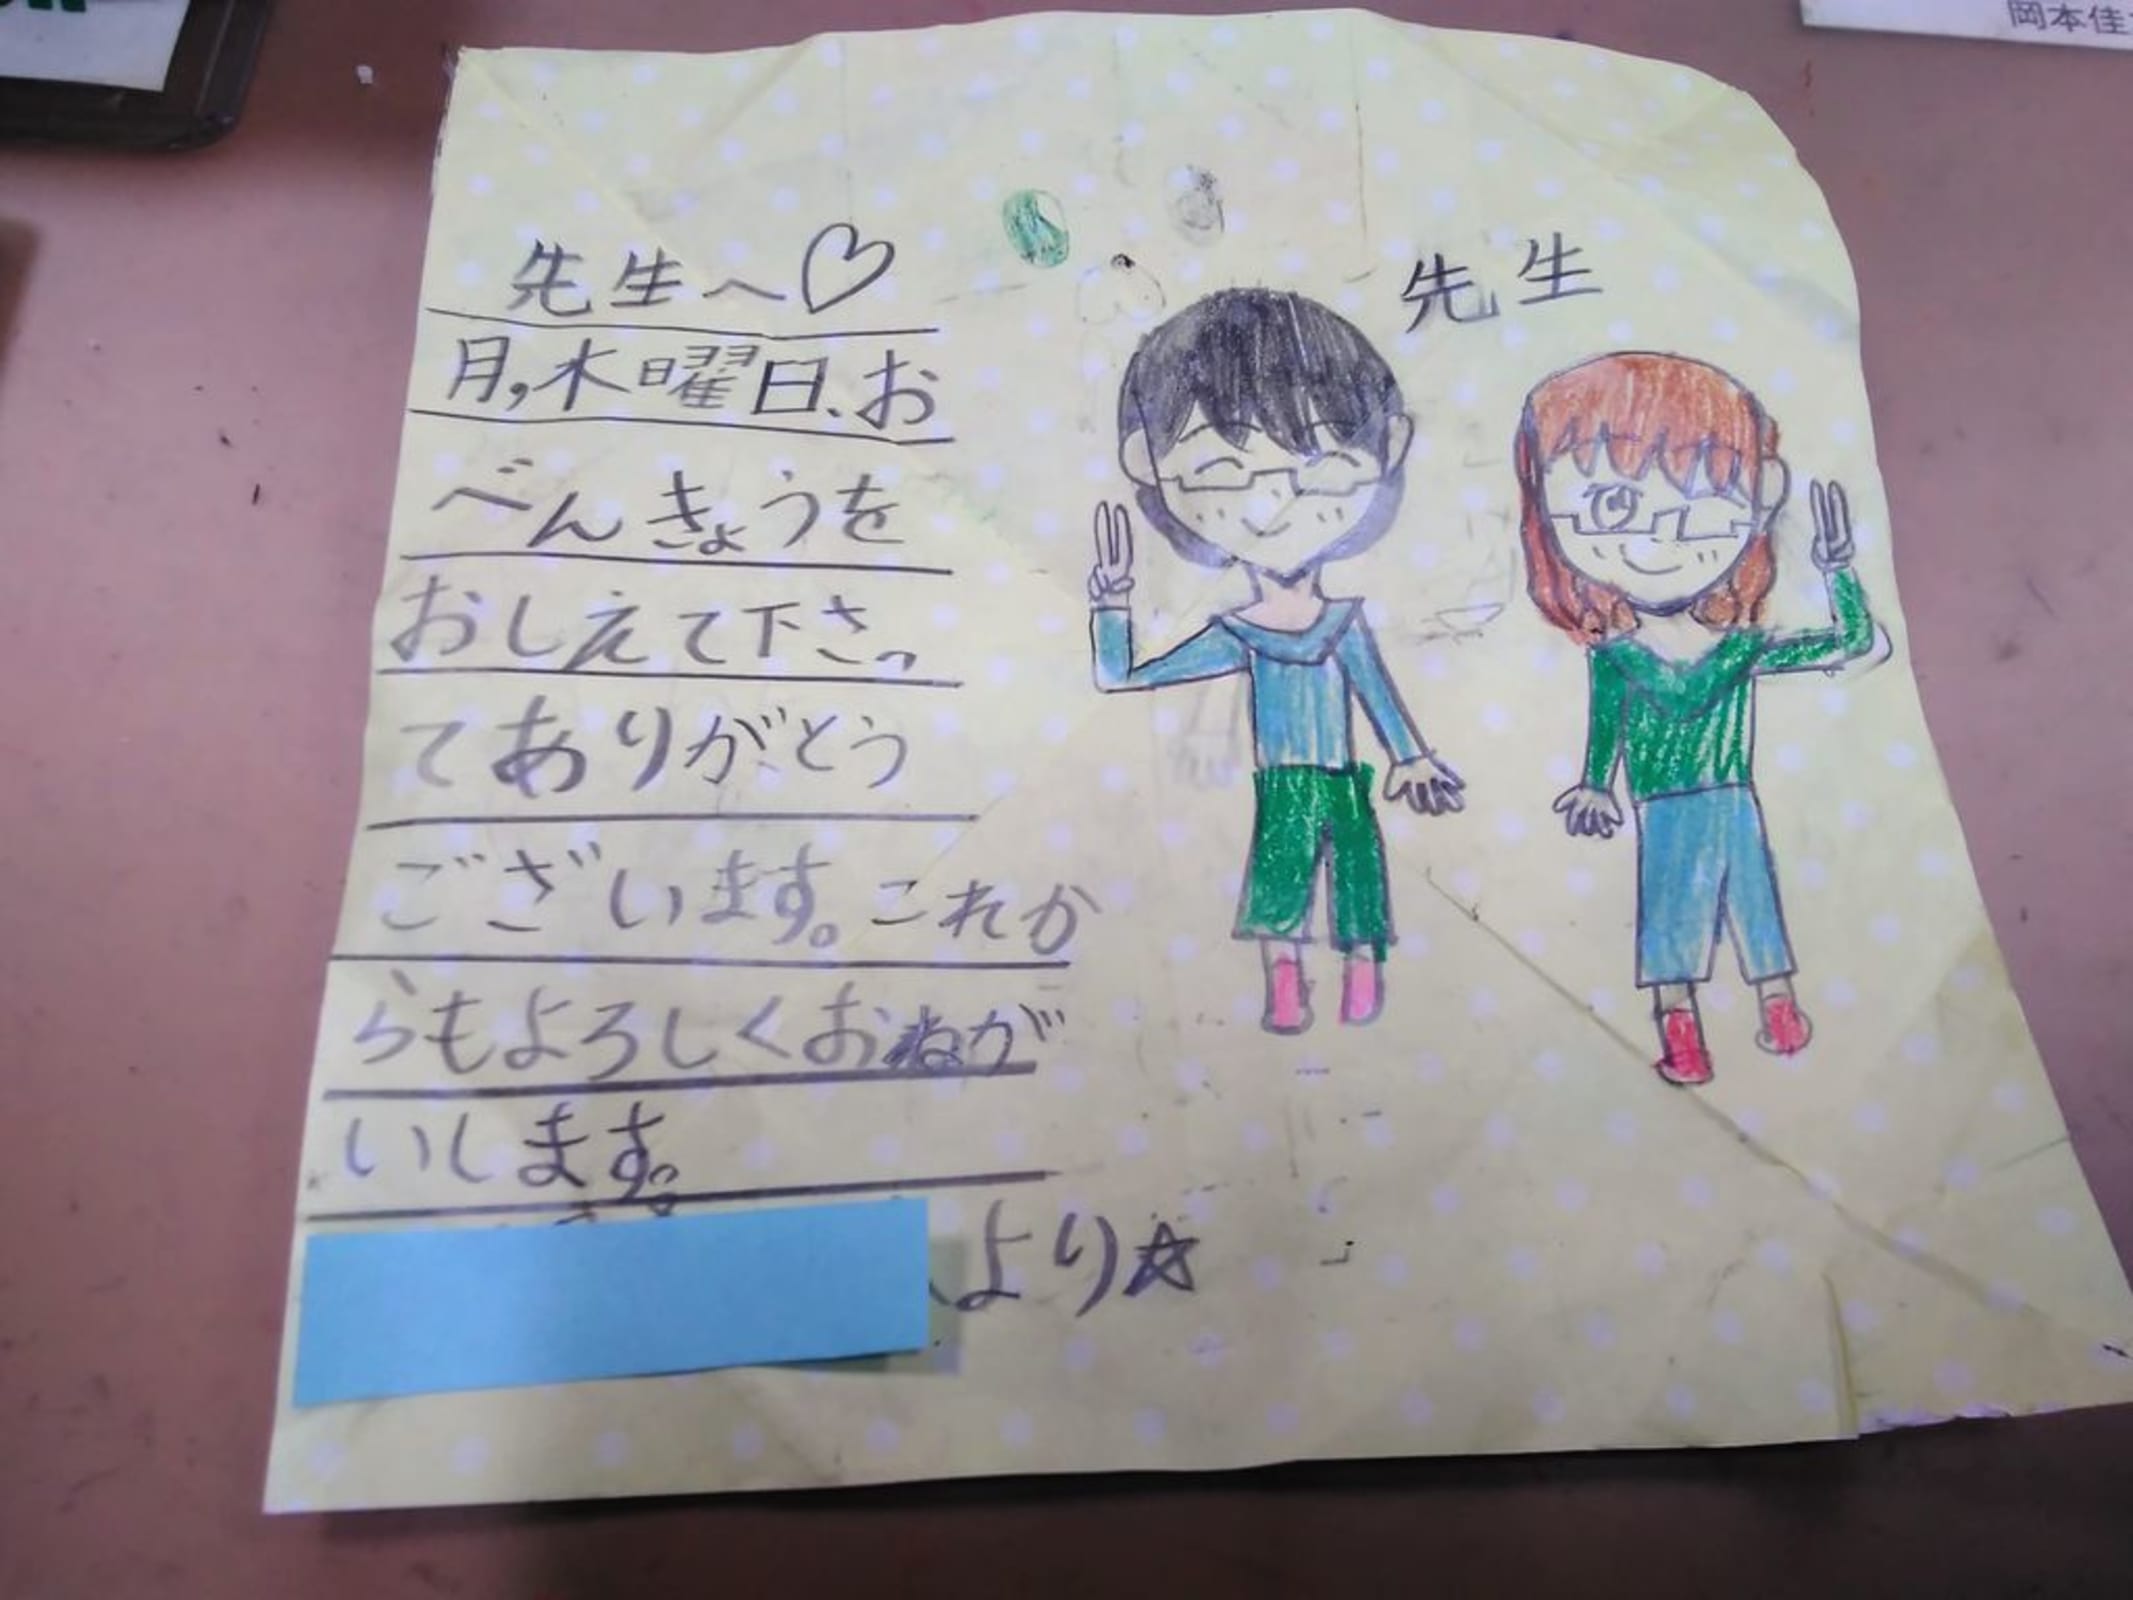 岡本佳
先生へ♡
先生
月,木曜日、お
べんきょうを
おしえて下さっ
てありがとう
ございます。これか
らもよろしくおねが
いします。
より☆